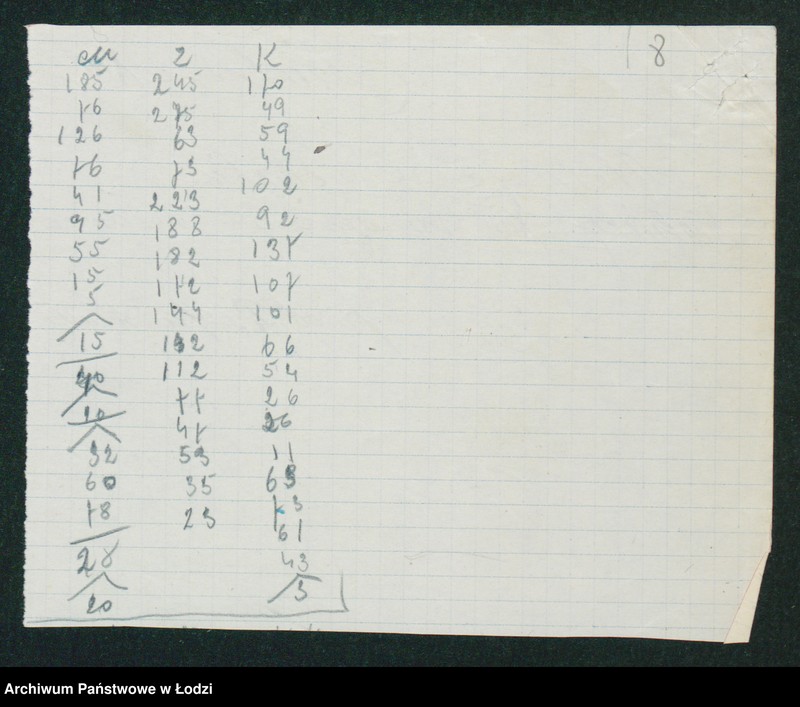 M Z K 18
185 245 170
76 275 49
126 63 59
76 73 44
41 223 102
95 188 92
55 182 137
15 172 107
5 144 101
15 152 66
40 112 54
10 77 26
32 47 26
60 53 11
78 35 63
28 23 73
20 61
43
5
Archiwum Państwowe w Łodzi